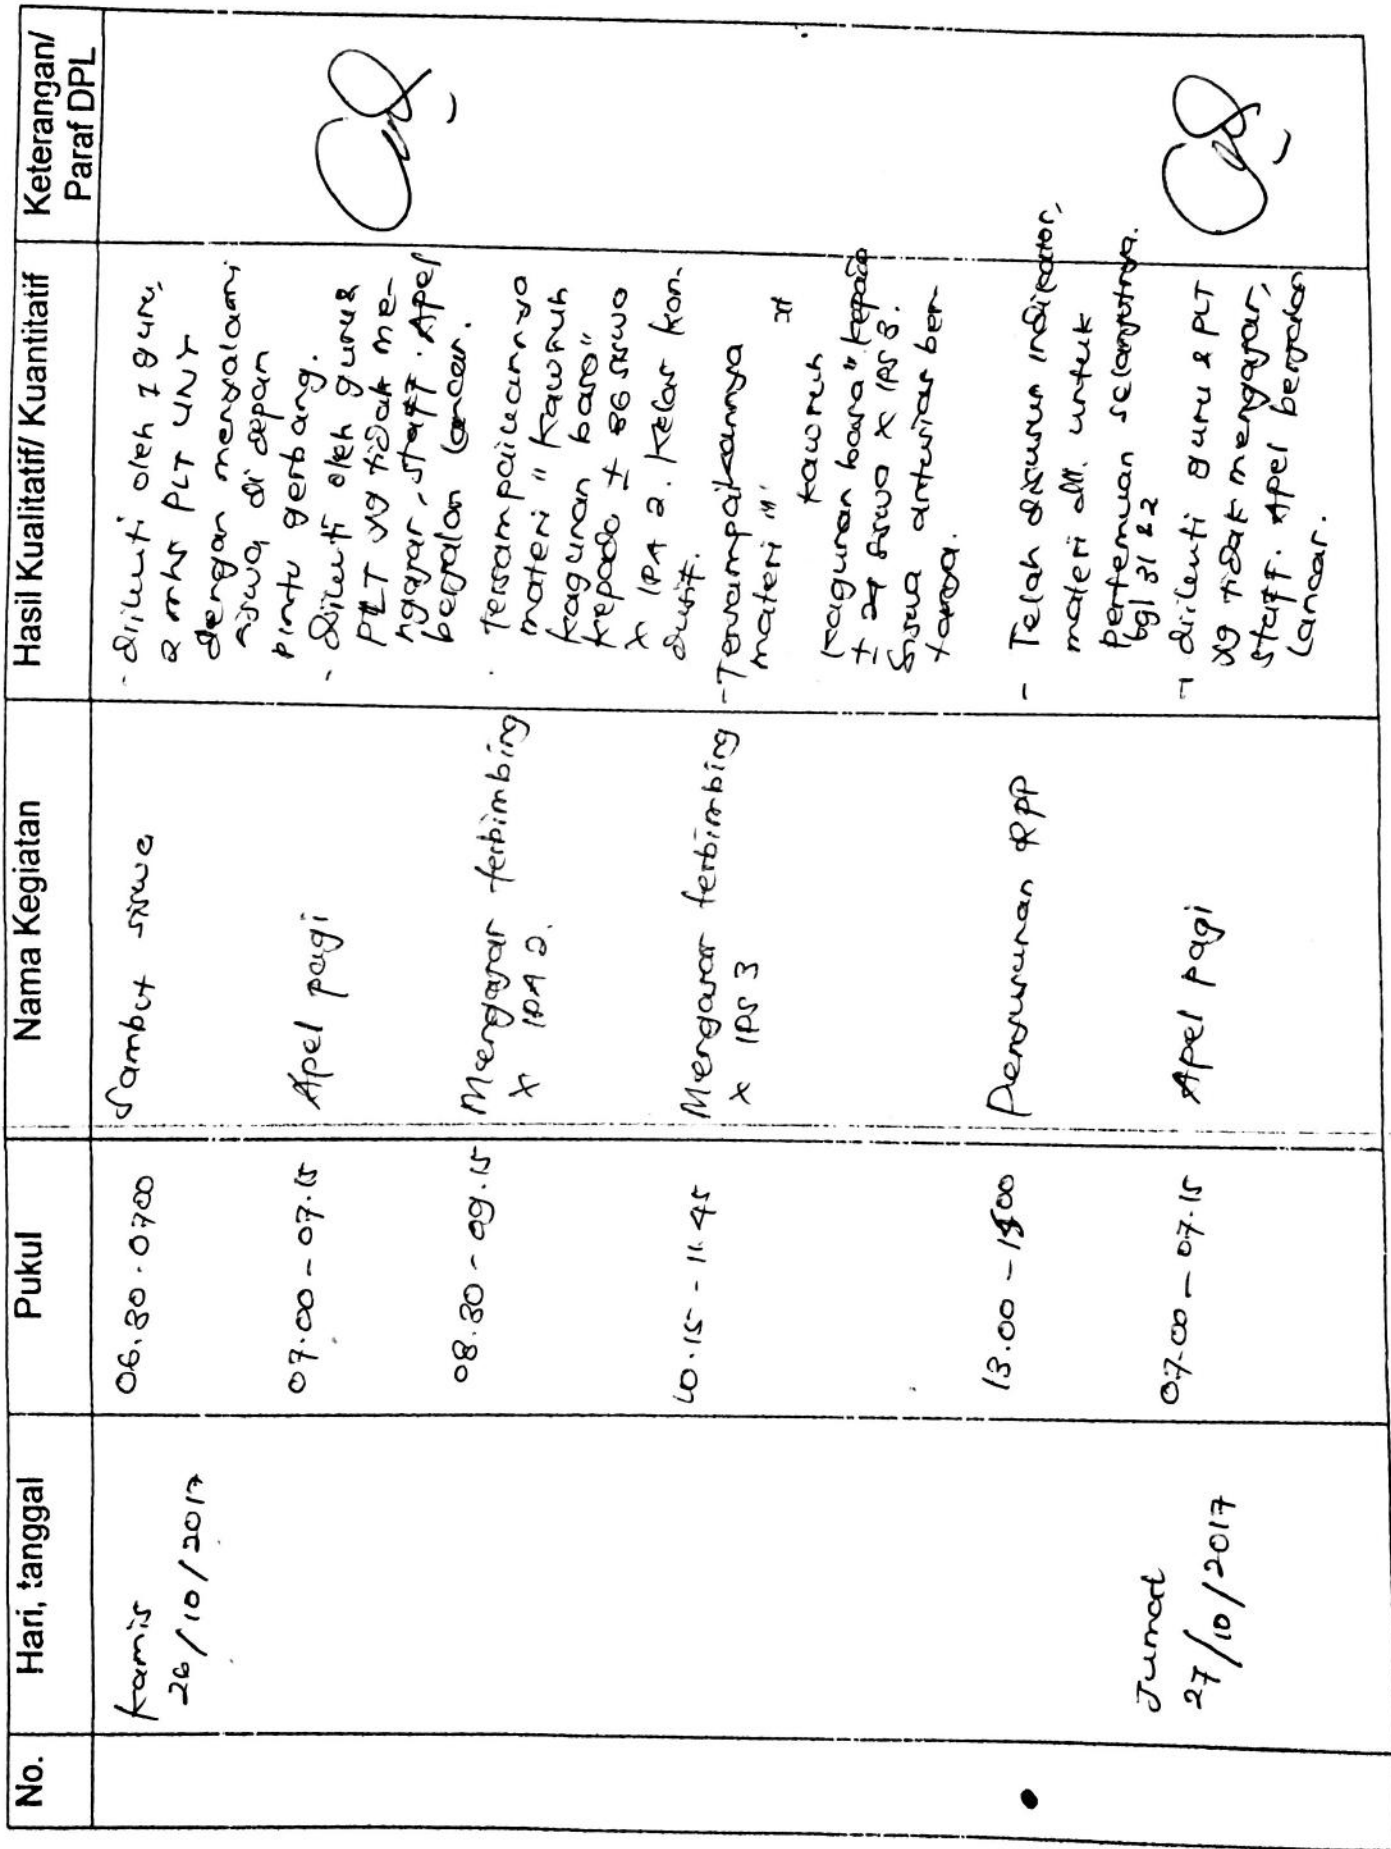 No.
Hari, tanggal
Pukul
Nama Kegiatan
Hasil Kualitatif/ Kuantitatif
Keterangan/
Paraf DPL
Kamis
26/10/2017
06.30 - 0700
Sambut siswa
- diikuti oleh 7 guru,
2 mhs PLT UNY
dengan menyalami
siswa di depan
pintu gerbang.
07.00 - 07.15
Apel pagi
- Diikuti oleh guru &
PLT yg tidak me-
ngajar, staff. Apel
berjalan lancar.
08.30 - 09.15
Mengajar terbimbing
X IPA 2.
- Tersampaikannya
materi " kawruh
kagunan basa"
kepada ± 36 siswa
X IPA 2. Kelas kon-
dusif.
10.15 - 11.45
Mengajar terbimbing
X IPS 3
- Tersampaikannya
materi "
kawruh
kagunan basa" kepada
± 27 siswa X IPS 3.
Siswa antusias ber-
tanya.
13.00 - 1500
Penyusunan RPP
- Telah disusun indikator,
materi dll. untuk
pertemuan selanjutnya.
bg 31 & 2
Jumat
27/10/2017
07.00 - 07.15
Apel pagi
- diikuti guru & PLT
yg tidak mengajar,
staff. Apel berjalan
lancar.